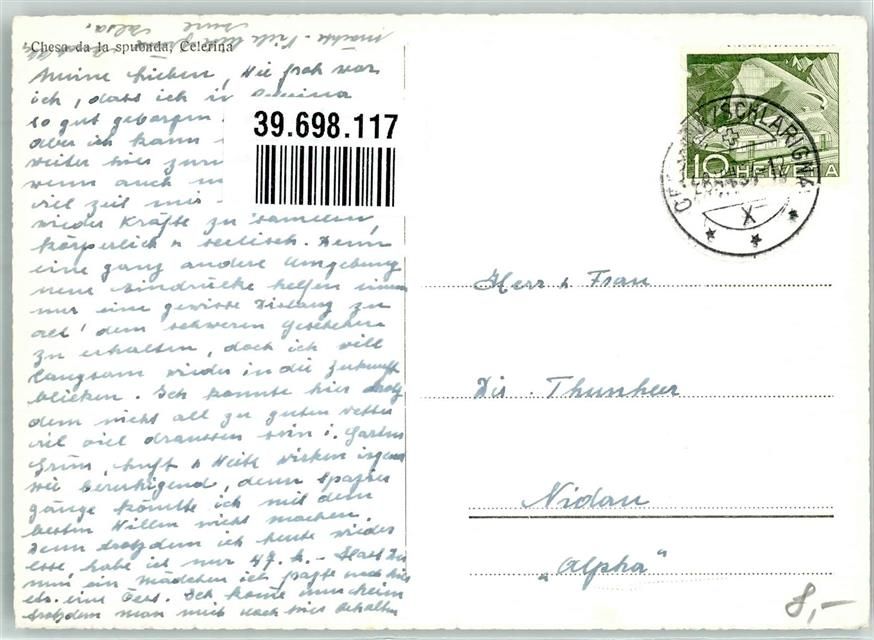 Chesa da la spunada, Celerina
Meine Lieben, Wie froh war
ich, dass ich in
so gut geborgen
aber ich kann
weiter hier zurü
wenn auch
viel Zeit mir
wieder Kräfte zu sammeln,
körperlich & seelisch. Denn
eine ganz andere Umgebung
neue Eindrücke helfen einem
nur eine gewisse Distanz zu
all' dem schweren Geschehen
zu erhalten, doch ich will
langsam wieder in die Zukunft
blicken. Ich konnte hier trotz
dem nicht all zu guten Wetter
viel viel draussen sein i. Garten
Grün, Luft & Weite wirken irgend
wie beruhigend, denn Spazier
gänge könnte ich mit dem
besten Willen nicht machen.
Denn trotzdem ich heute wieder
esse, habe ich nur 47. k. -
mir ein Mädchen ich passe noch hier
etc. eine Ich komme nun heim
trotzdem man mich noch hier behalten
möchte. Viele
39.698.117
HELVETIA
10
CELERINA/SCHLARIGNA
X
Herr & Frau
Dir. Thunheer
Nidau
„Alpha"
8,-